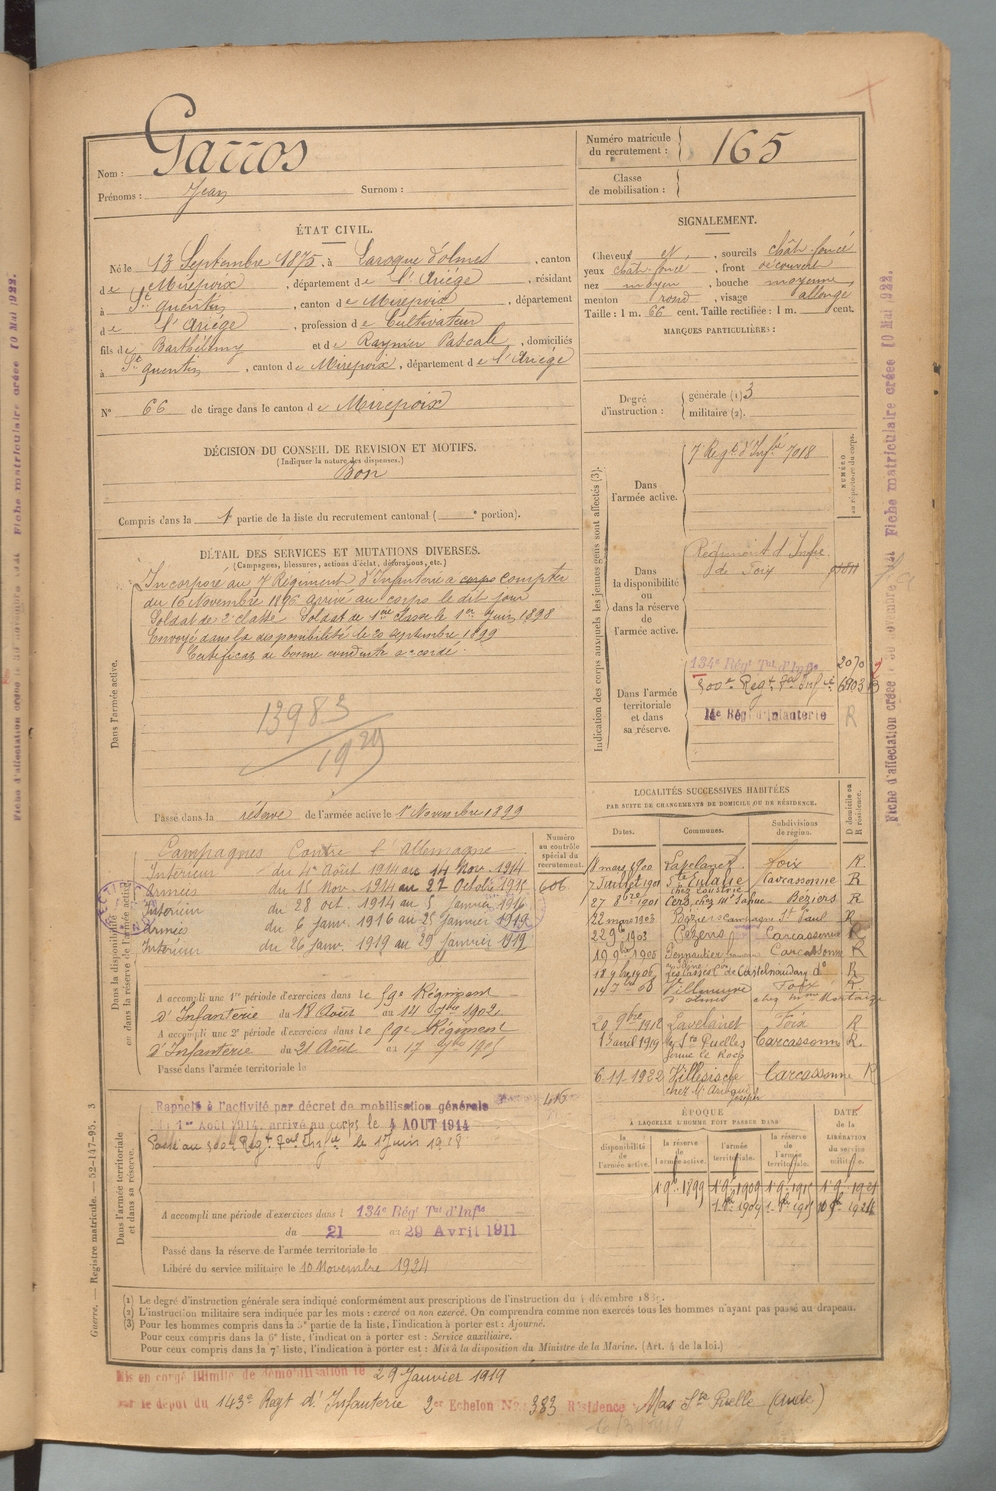 Garros
Nom :
Prénoms : Jean Surnom :
Numéro matricule du recrutement : 165
Classe de mobilisation :
ÉTAT CIVIL.
Né le 13 Septembre 1875, à Laroque d'olmes, canton
de Mirepoix, département de l'Ariège, résidant
à St Quentin, canton de Mirepoix, département
de l'Ariége, profession de Cultivateur
fils de Barthélemy et de Raynier Pascale, domiciliés
à St Quentin, canton de Mirepoix, département de l'Ariége
N° 66 de tirage dans le canton de Mirepoix
SIGNALEMENT.
Cheveux et, sourcils chât. foncé
yeux chât. foncé, front découvert
nez moyen, bouche moyenne,
menton rond, visage allongé
Taille : 1 m. 66 cent. Taille rectifiée : 1 m. cent.
MARQUES PARTICULIÈRES :
Degré d'instruction : générale (1) 3
militaire (2).
DÉCISION DU CONSEIL DE REVISION ET MOTIFS.
(Indiquer la nature des dispenses.)
Bon
Compris dans la 1e partie de la liste du recrutement cantonal ( e portion).
DÉTAIL DES SERVICES ET MUTATIONS DIVERSES.
(Campagnes, blessures, actions d'éclat, décorations, etc.)
Dans l'armée active.
Incorporé au 7 Régiment d'Infanterie a corps compter
du 16 Novembre 1896 arrivé au corps le dit jour
Soldat de 2e classe Soldat de 1ere classe le 1er Juin 1898
Envoyé dans la disponibilité le 20 septembre 1899
Certificat de bonne conduite accordé.
13983
1929
Passé dans la réserve de l'armée active le 1 Novembre 1899
Indication des corps auxquels les jeunes gens sont affectés (3).
NUMÉRO au répertoire du corps.
Dans l'armée active. 7e Regt d'Infie 7018
Dans la disponibilité ou dans la réserve de l'armée active.
Régiment d'Infie
de Foix
Dans l'armée territoriale et dans sa réserve.
134e Régt Tal d'Infie 2070
500e Regt Tal Infie 6903
14e Rég d'Infanterie R
LOCALITÉS SUCCESSIVES HABITÉES
PAR SUITE DE CHANGEMENTS DE DOMICILE OU DE RÉSIDENCE.
Dates. Communes. Subdivisions de région. D domicile ou R résidence.
8 mars 1900 Lavelanet Foix R
7 Juillet 1901 Ste Eulalie Carcassonne R
27 1901 Cers, chez Mr Béziers R
22 mars 1903 Béziers St Paul R
22 9bre 1903 Pézens Carcassonne R
19 9bre 1905 Carcassonne R
18 9bre 1906 Castelnaudary do R
Villeneuve d'olmes Foix R
20 9bre 1912 Lavelanet Foix R
1 avril 1919 Mas Stes Puelles Carcassonne R.
6-11-1922 Villesiscle Carcassonne R
Joseph
Numéro au contrôle spécial du recrutement.
606
Dans la disponibilité ou dans la réserve de l'armée active.
Campagnes Contre l'Allemagne
Intérieur du 4 Août 1914 au 14 Nov. 1914
Armées du 15 Nov. 1914 au 27 Octobre 1915
Intérieur du 28 oct. 1914 au 5 janvier 1916
Armées du 6 janv. 1916 au 25 janvier 1919
Intérieur du 26 janv. 1919 au 29 janvier 1919
A accompli une 1re période d'exercices dans le 59e Régiment
d'Infanterie du 18 Août au 14 7bre 1902.
A accompli une 2e période d'exercices dans le 59e Régiment
d'Infanterie du 21 Août au 17 7bre 1905
Passé dans l'armée territoriale le
Dans l'armée territoriale et dans sa réserve.
Rappelé à l'activité par décret de mobilisation générale
du 1er Août 1914, arrivé au corps le 4 AOUT 1914
Passé au 500e Regt Tal Infie le 1 Juin 1918
416
A accompli une période d'exercices dans l 134e Régt Tal d'Infie
du 21 au 29 Avril 1911
Passé dans la réserve de l'armée territoriale le
Libéré du service militaire le 10 Novembre 1924
ÉPOQUE
À LAQUELLE L'HOMME DOIT PASSER DANS
la disponibilité de l'armée active. la réserve de l'armée active. l'armée territoriale. la réserve de l'armée territoriale. DATE de la LIBÉRATION du service militaire.
1 9e 1899 1 9e 1909 1 9e 1915 1 9e 1921
1 9e 1909 1 9e 1915 10 9e 1924
(1) Le degré d'instruction générale sera indiqué conformément aux prescriptions de l'instruction du 4 décembre 1889.
(2) L'instruction militaire sera indiquée par les mots : exercé ou non exercé. On comprendra comme non exercés tous les hommes n'ayant pas passé au drapeau.
(3) Pour les hommes compris dans la 5e partie de la liste, l'indication à porter est : Ajourné.
Pour ceux compris dans la 6e liste, l'indication à porter est : Service auxiliaire.
Pour ceux compris dans la 7e liste, l'indication à porter est : Mis à la disposition du Ministre de la Marine. (Art. 4 de la loi.)
Mis en congé illimité de démobilisation le 29 Janvier 1919
par le dépôt du 143e Regt d'Infanterie 2er Echelon No 383 Résidence Mas Ste Puelle (Aude)
Guerre. — Registre matricule. — 52-147-95. 3
Fiche matriculaire créée 10 Mai 1922.